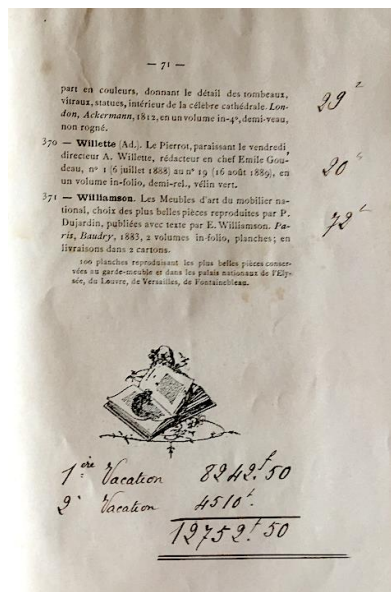 — 71 —
part en couleurs, donnant le détail des tombeaux,
vitraux, statues, intérieur de la célèbre cathédrale. Lon-
don, Ackermann, 1812, en un volume in-4°, demi-veau,
non rogné.
29 f
370 — Willette (Ad.). Le Pierrot, paraissant le vendredi,
directeur A. Willette, rédacteur en chef Emile Gou-
deau, n° 1 (6 juillet 1888) au n° 19 (16 août 1889), en
un volume in-folio, demi-rel., vélin vert.
20 f
371 — Williamson. Les Meubles d'art du mobilier na-
tional, choix des plus belles pièces reproduites par P.
Dujardin, publiées avec texte par E. Williamson. Pa-
ris, Baudry, 1883, 2 volumes in-folio, planches; en
livraisons dans 2 cartons.
72 f
100 planches reproduisant les plus belles pièces conser-
vées au garde-meuble et dans les palais nationaux de l'Ely-
sée, du Louvre, de Versailles, de Fontainebleau.
1ère Vacation 8242 f. 50
2e Vacation 4510 f.
12752 f. 50